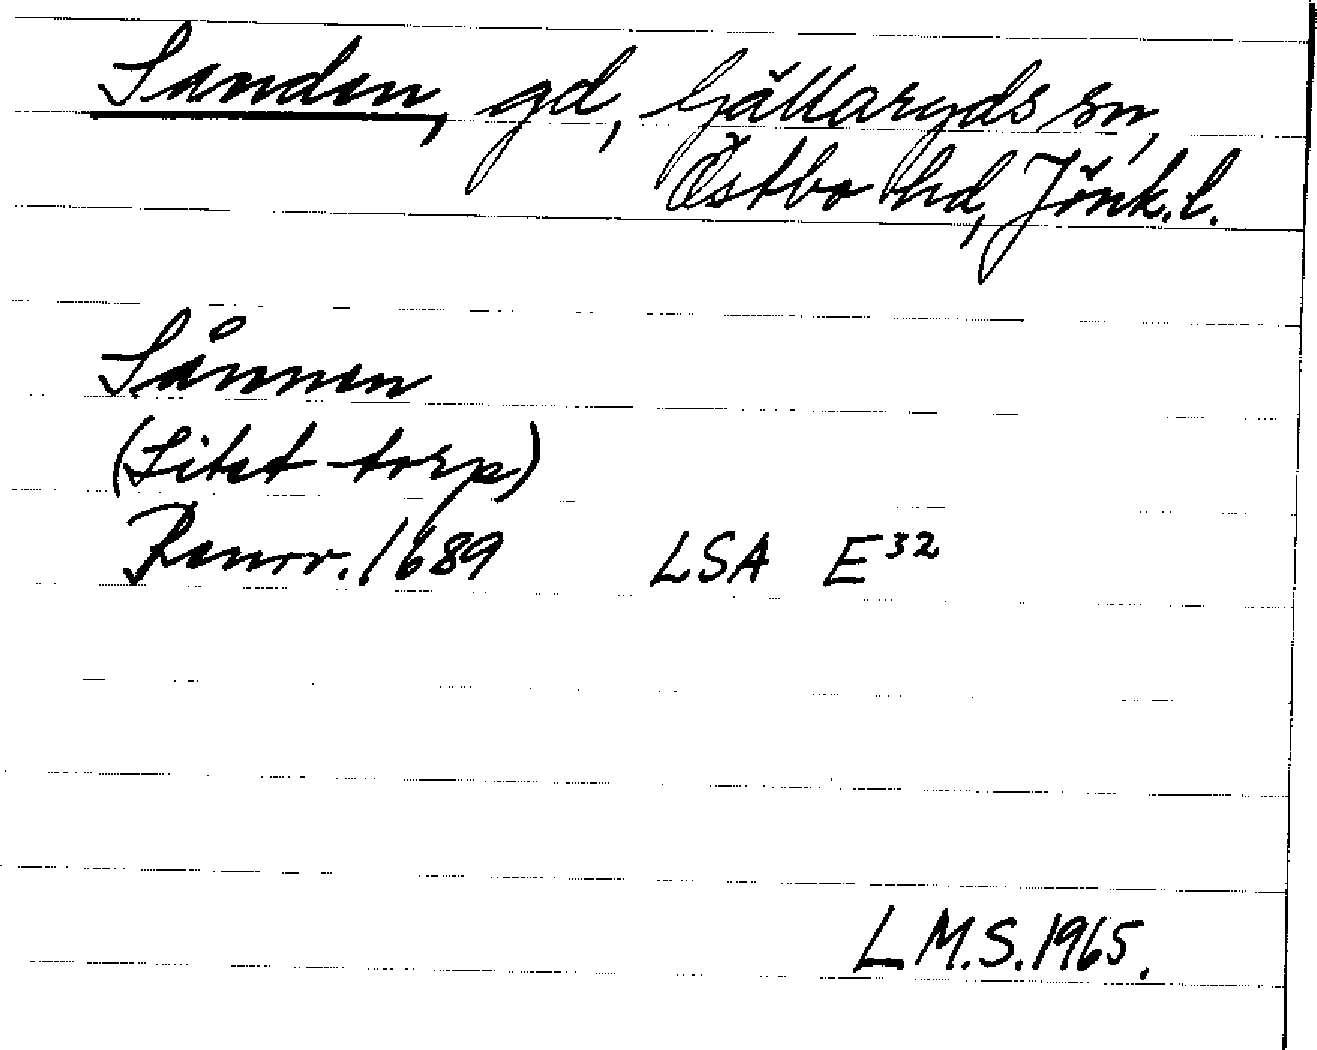 Sanden, gd, Gällaryds sn,
Östbo hd, Jönk. l.
Sånnen
(Litet torp)
Ransv. 1689 LSA E32
L.M.S. 1965.